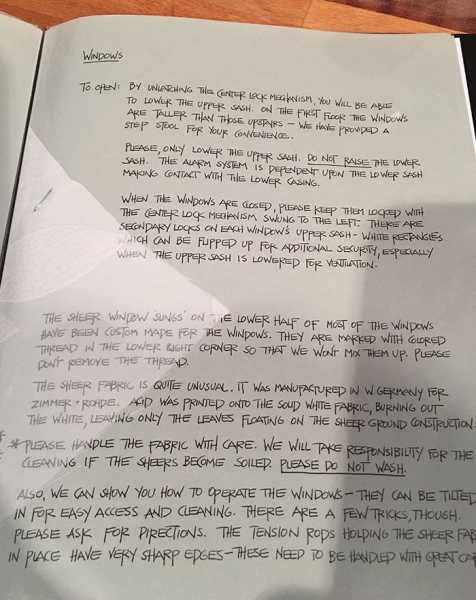 WINDOWS
TO OPEN: BY UNLATCHING THE CENTER LOCK MECHANISM, YOU WILL BE ABLE
TO LOWER THE UPPER SASH. ON THE FIRST FLOOR THE WINDOWS
ARE TALLER THAN THOSE UPSTAIRS - WE HAVE PROVIDED A
STEP STOOL FOR YOUR CONVENIENCE.
PLEASE, ONLY LOWER THE UPPER SASH. DO NOT RAISE THE LOWER
SASH. THE ALARM SYSTEM IS DEPENDENT UPON THE LOWER SASH
MAKING CONTACT WITH THE LOWER CASING.
WHEN THE WINDOWS ARE CLOSED, PLEASE KEEP THEM LOCKED WITH
THE CENTER LOCK MECHANISM SWUNG TO THE LEFT. THERE ARE
SECONDARY LOCKS ON EACH WINDOW'S UPPER SASH - WHITE RECTANGLES
WHICH CAN BE FLIPPED UP FOR ADDITIONAL SECURITY, ESPECIALLY
WHEN THE UPPER SASH IS LOWERED FOR VENTILATION.
THE SHEER WINDOW 'SLINGS' ON THE LOWER HALF OF MOST OF THE WINDOWS
HAVE BEEN CUSTOM MADE FOR THE WINDOWS. THEY ARE MARKED WITH COLORED
THREAD IN THE LOWER RIGHT CORNER SO THAT WE WON'T MIX THEM UP. PLEASE
DON'T REMOVE THE THREAD.
THE SHEER FABRIC IS QUITE UNUSUAL. IT WAS MANUFACTURED IN W. GERMANY FOR
ZIMMER + ROHDE. ACID WAS PRINTED ONTO THE SOLID WHITE FABRIC, BURNING OUT
THE WHITE, LEAVING ONLY THE LEAVES FLOATING ON THE SHEER GROUND CONSTRUCTION.
* PLEASE HANDLE THE FABRIC WITH CARE. WE WILL TAKE RESPONSIBILITY FOR THE
CLEANING IF THE SHEERS BECOME SOILED. PLEASE DO NOT WASH.
ALSO, WE CAN SHOW YOU HOW TO OPERATE THE WINDOWS - THEY CAN BE TILTED
IN FOR EASY ACCESS AND CLEANING. THERE ARE A FEW TRICKS, THOUGH.
PLEASE ASK FOR DIRECTIONS. THE TENSION RODS HOLDING THE SHEER FAB
IN PLACE HAVE VERY SHARP EDGES - THESE NEED TO BE HANDLED WITH GREAT CAR